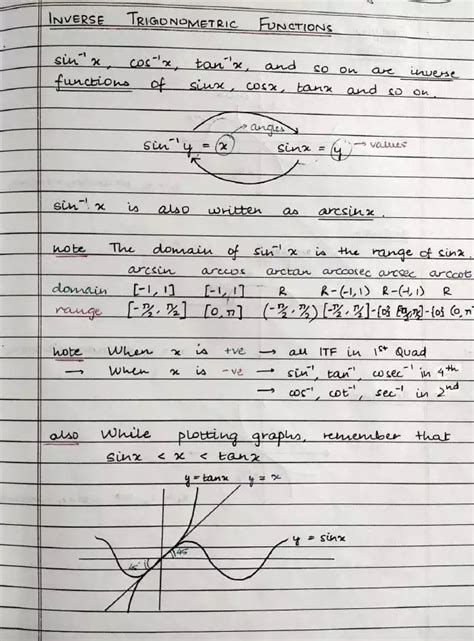 INVERSE TRIGONOMETRIC FUNCTIONS
sin⁻¹x, cos⁻¹x, tan⁻¹x, and so on are inverse
functions of sinx, cosx, tanx and so on.
sin⁻¹y = x → angles sinx = y → values
sin⁻¹ x is also written as arcsinx.
note The domain of sin⁻¹ x is the range of sinx.
arcsin arccos arctan arccosec arcsec arccot
domain [-1, 1] [-1, 1] R R-(-1,1) R-(-1,1) R
range [-π/2, π/2] [0, π] (-π/2, π/2) [-π/2, π/2]-{0} -{0} (0, π
note When x is +ve → all ITF in 1st Quad
→ When x is -ve → sin⁻¹, tan⁻¹, cosec⁻¹ in 4th
→ cos⁻¹, cot⁻¹, sec⁻¹ in 2nd
also While plotting graphs, remember that
sinx < x < tanx
y = tanx y = x
y = sinx
45
45